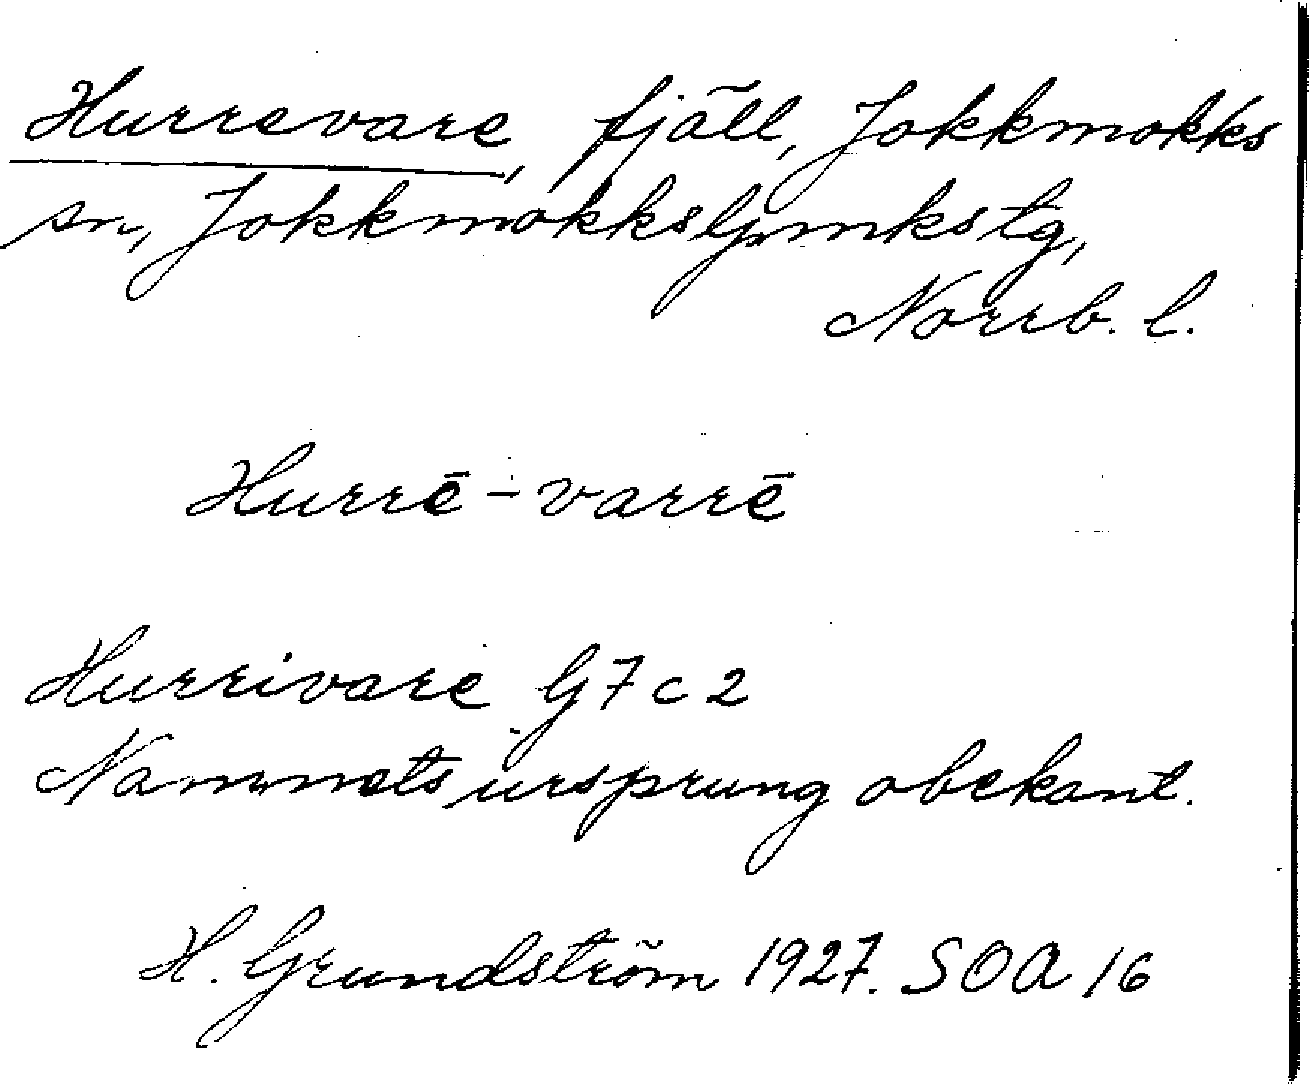 Hurrevare, fjäll, Jokkmokks
sn, Jokkmokks lpmkstg,
Norrb. l.
Hurrē-varrē
Hurrivare G 7 c 2
Namnets ursprung obekant.
H. Grundström 1927. SOA 16